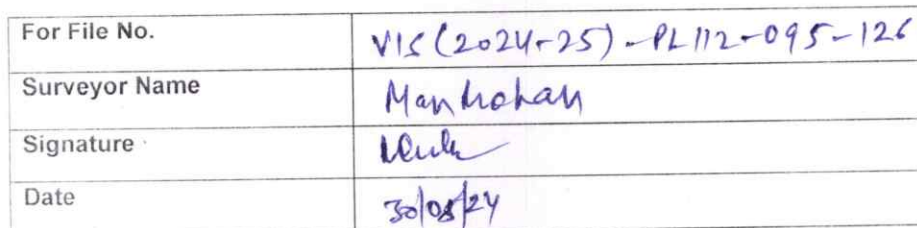 For File No. VIS(2024-25)-PL112-095-126
Surveyor Name Manmohan
Signature
Date 30/08/24